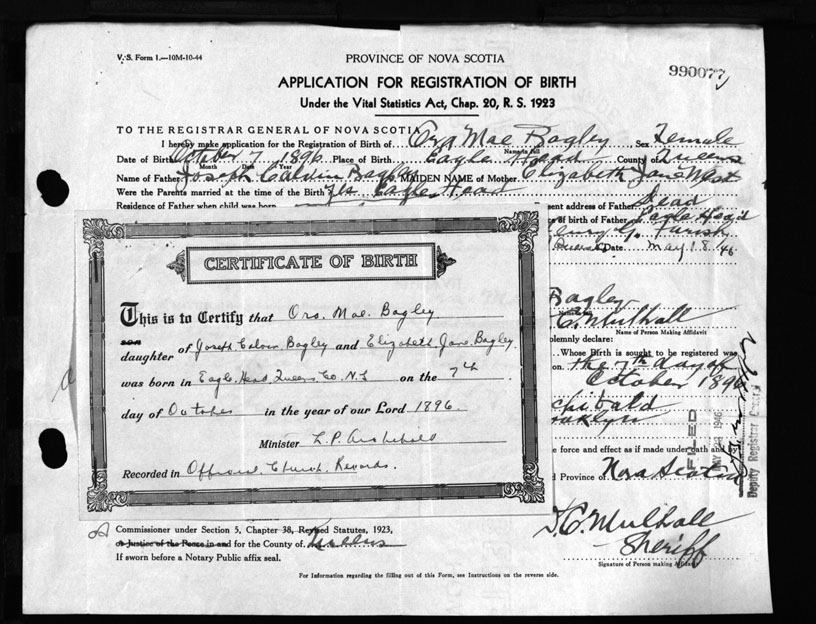 V. S. Form 1.—10M-10-44
PROVINCE OF NOVA SCOTIA
990077
APPLICATION FOR REGISTRATION OF BIRTH
Under the Vital Statistics Act, Chap. 20, R. S. 1923
TO THE REGISTRAR GENERAL OF NOVA SCOTIA
I hereby make application for the Registration of Birth of Ora Mae Bagley Sex Female
Name in Full
Date of Birth October 7 1896 Place of Birth Eagle Head County of Queens
Month Date Year
Name of Father Joseph Calvin Bagley MAIDEN NAME of Mother Elizabeth Jane West
Were the Parents married at the time of the Birth Yes Eagle Head
Residence of Father when child was born
sent address of Father Dead
ce of birth of Father Eagle Head
Date May 18 46
CERTIFICATE OF BIRTH
This is to Certify that Ora. Mae. Bagley
son
daughter of Joseph Calvin. Bagley and Elizabeth Jane. Bagley.
was born in Eagle. Head Queens Co N.S on the 7th
day of October in the year of our Lord 1896.
Minister L. P. Archibald
Recorded in Official. Church. Records.
Bagley
C. Mulhall
Name of Person Making Affidavit
olemnly declare:
Whose Birth is sought to be registered was
on the 7th day of
October 1896
chibald
ooklyn
e force and effect as if made under oath and by
d Province of Nova Scotia
FILED
MAY 1946
Deputy Registrar General
Commissioner under Section 5, Chapter 38, Revised Statutes, 1923,
or Justice of the Peace in and for the County of Queens
If sworn before a Notary Public affix seal.
C. Mulhall
Sheriff
Signature of Person making Affidavit
For Information regarding the filling out of this Form, see Instructions on the reverse side.